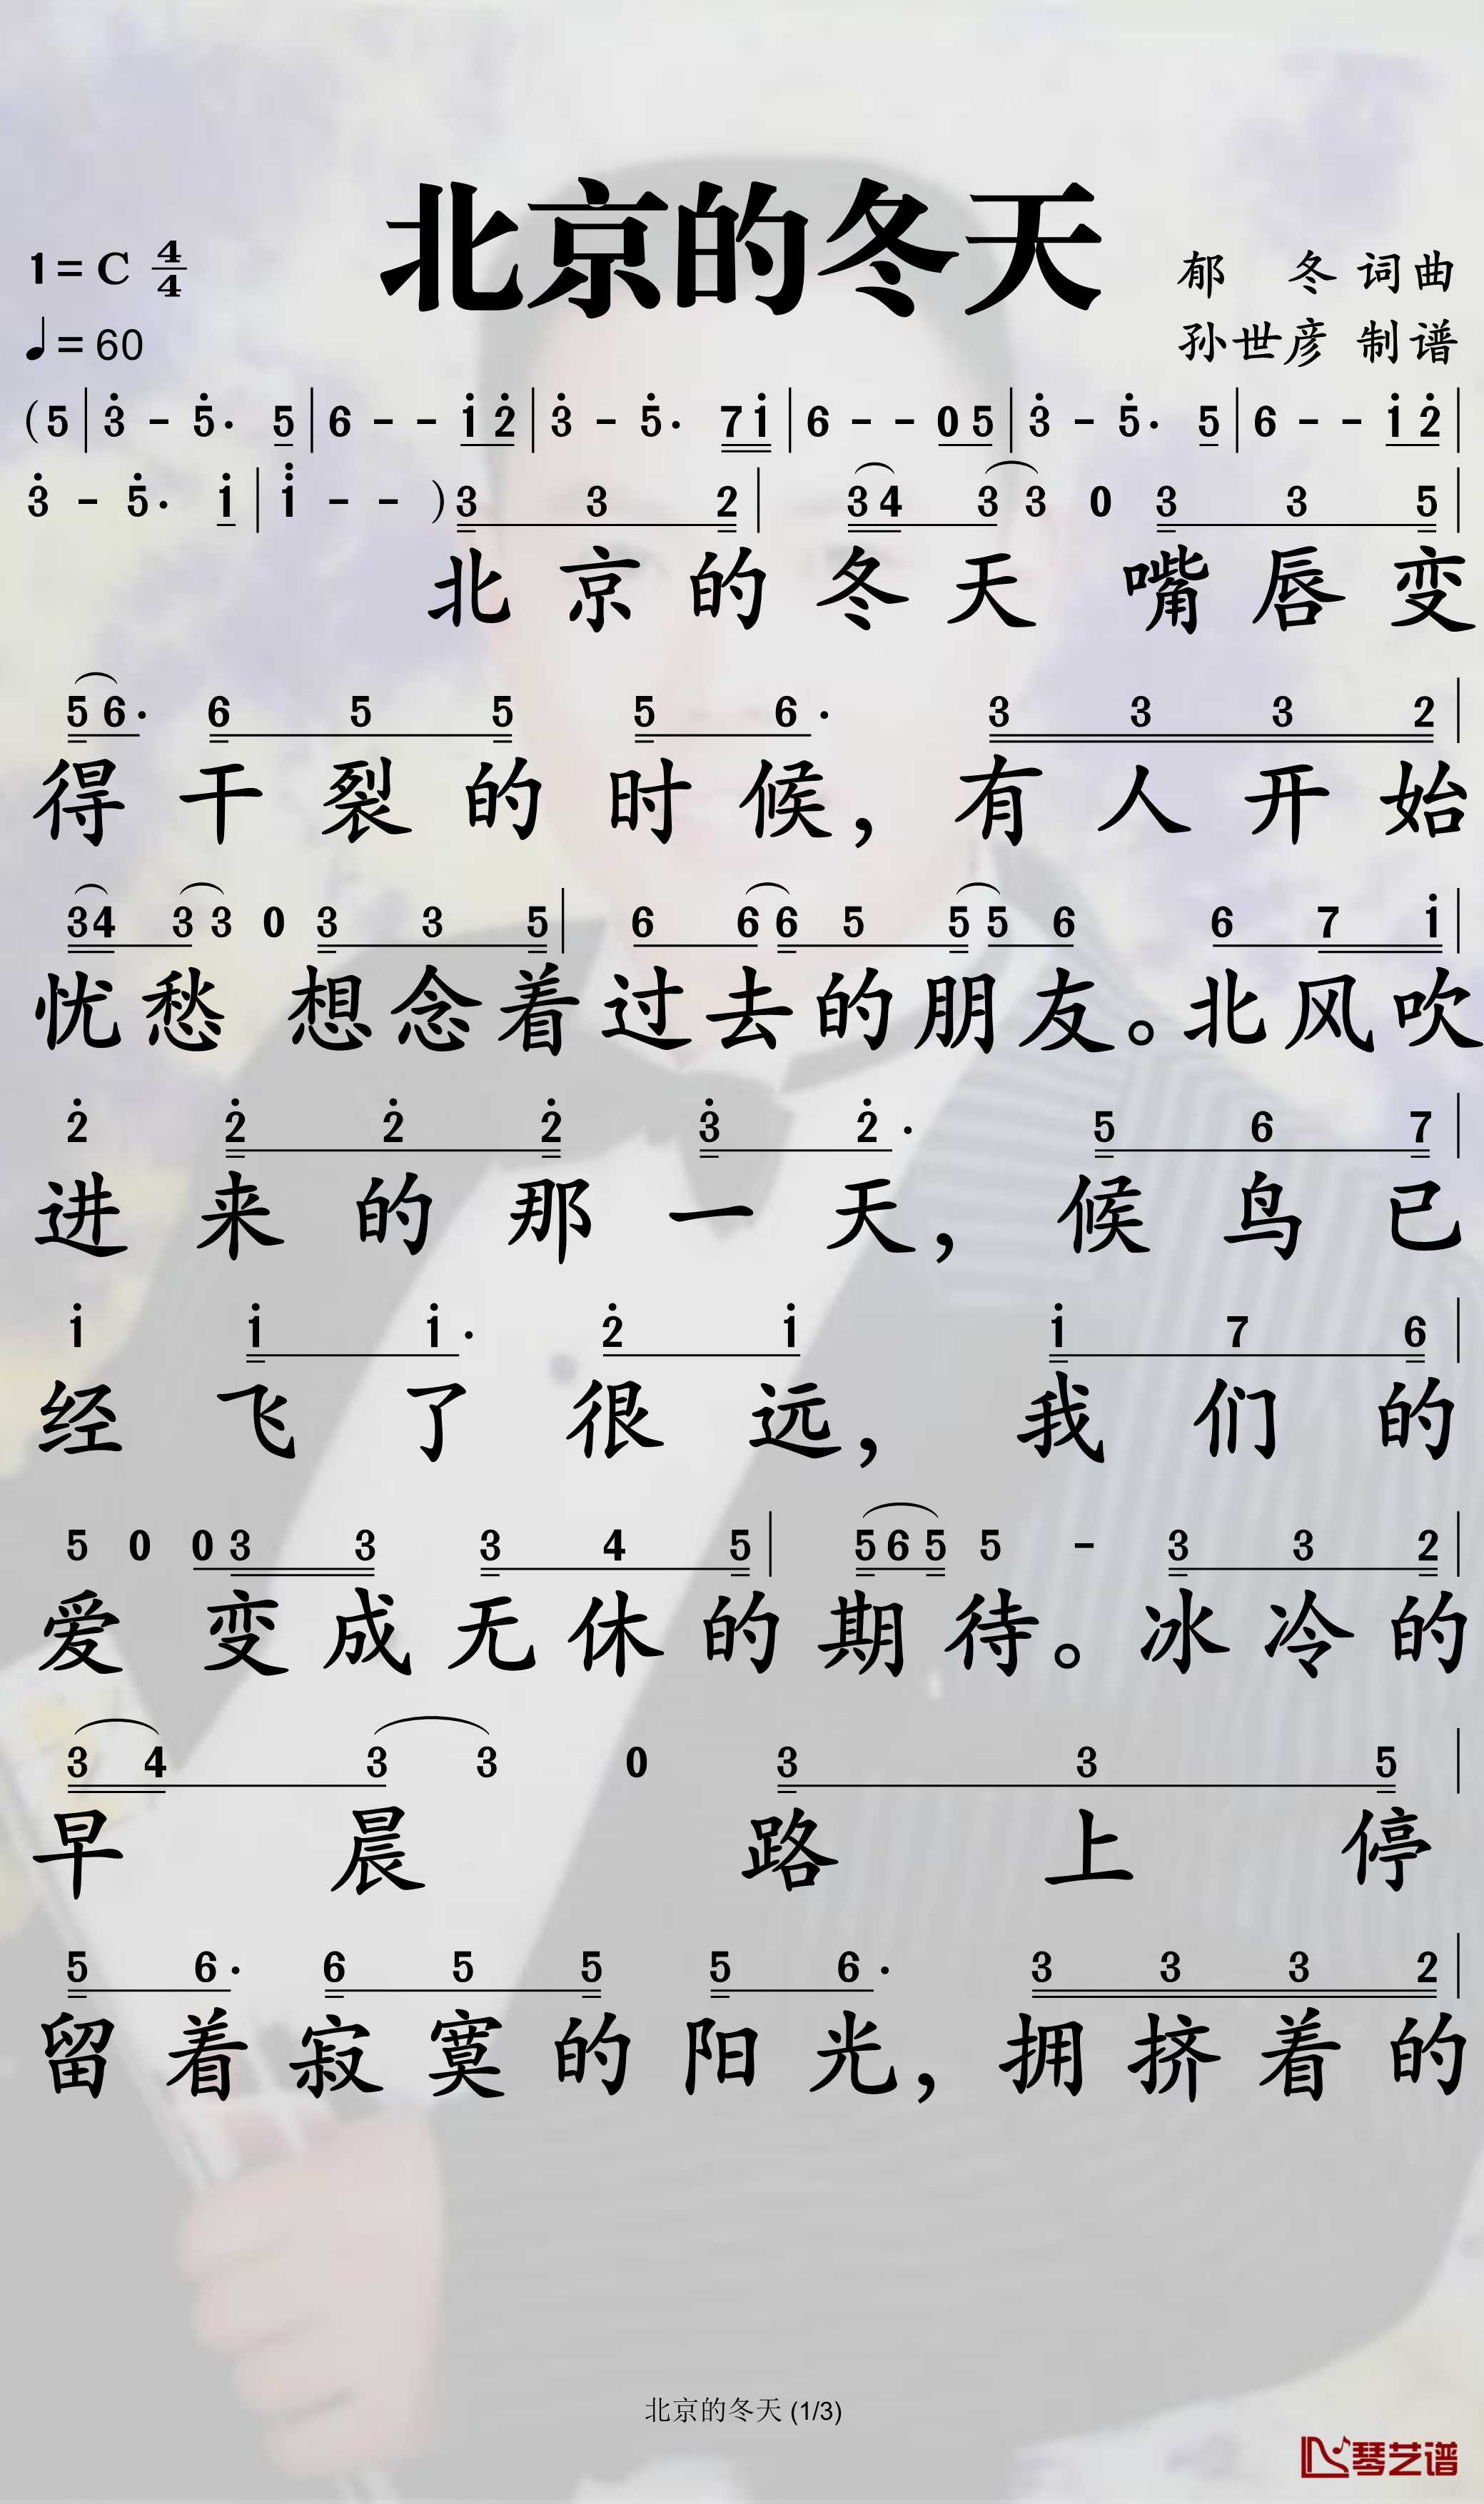 北京的冬天
1=C 4/4
郁 冬 词曲
♩=60
孙世彦 制谱
(5 | 3̇ - 5̇. 5 | 6 - - 1̇ 2̇ | 3̇ - 5̇. 7 1̇ | 6 - - 0 5 | 3̇ - 5̇. 5 | 6 - - 1̇ 2̇ |
3̇ - 5̇. 1̇ | 1̇ - - ) 3 3 2 | 3 4 3 3 0 3 3 5 |
北 京 的 冬 天 嘴 唇 变
5 6. 6 5 5 5 6. 3 3 3 2 |
得 干 裂 的 时 候, 有 人 开 始
3 4 3 3 0 3 3 5 | 6 6 6 5 5 5 6 6 7 1̇ |
忧 愁 想 念 着 过 去 的 朋 友。北 风 吹
2̇ 2̇ 2̇ 2̇ 3̇ 2̇. 5 6 7 |
进 来 的 那 一 天, 候 鸟 已
1̇ 1̇ 1̇. 2̇ 1̇ 1̇ 7 6 |
经 飞 了 很 远, 我 们 的
5 0 0 3 3 3 4 5 | 5 6 5 5 - 3 3 2 |
爱 变 成 无 休 的 期 待。冰 冷 的
3 4 3 3 0 3 3 5 |
早 晨 路 上 停
5 6. 6 5 5 5 6. 3 3 3 2 |
留 着 寂 寞 的 阳 光, 拥 挤 着 的
北京的冬天 (1/3)
琴艺谱